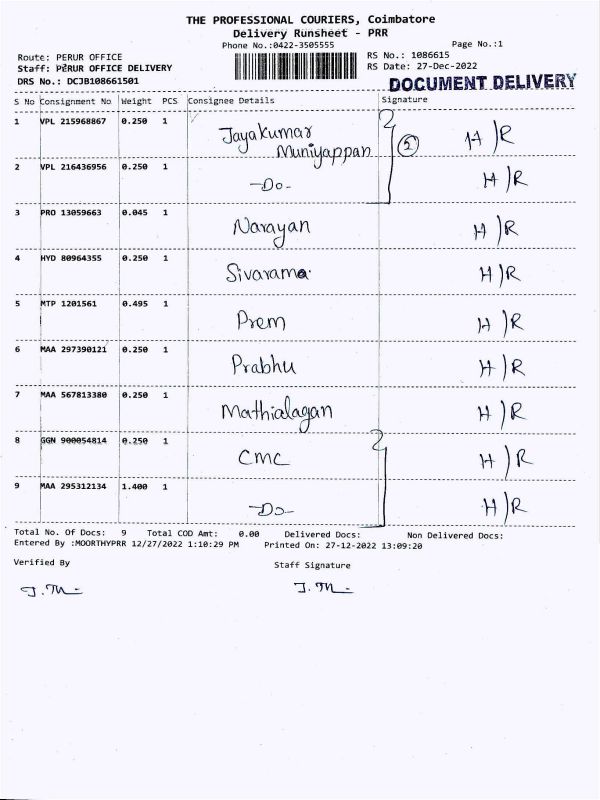 THE PROFESSIONAL COURIERS, Coimbatore
Delivery Runsheet - PRR
Phone No.:0422-3505555
Page No.:1
Route: PERUR OFFICE
RS No.: 1086615
Staff: PERUR OFFICE DELIVERY
RS Date: 27-Dec-2022
DRS No.: DCJB108661501
DOCUMENT DELIVERY
S No Consignment No Weight PCS Consignee Details Signature
1 VPL 215968867 0.250 1 Jayakumar Muniyappan 5 H)R
2 VPL 216436956 0.250 1 -Do- H)R
3 PRO 13059663 0.045 1 Narayan H)R
4 HYD 80964355 0.250 1 Sivarama H)R
5 MTP 1201561 0.495 1 Prem H)R
6 MAA 297390121 0.250 1 Prabhu H)R
7 MAA 567813380 0.250 1 Mathialagan H)R
8 GGN 900054814 0.250 1 CMC H)R
9 MAA 295312134 1.400 1 -Do- H)R
Total No. Of Docs: 9 Total COD Amt: 0.00 Delivered Docs: Non Delivered Docs:
Entered By :MOORTHYPRR 12/27/2022 1:10:29 PM Printed On: 27-12-2022 13:09:20
Verified By Staff Signature